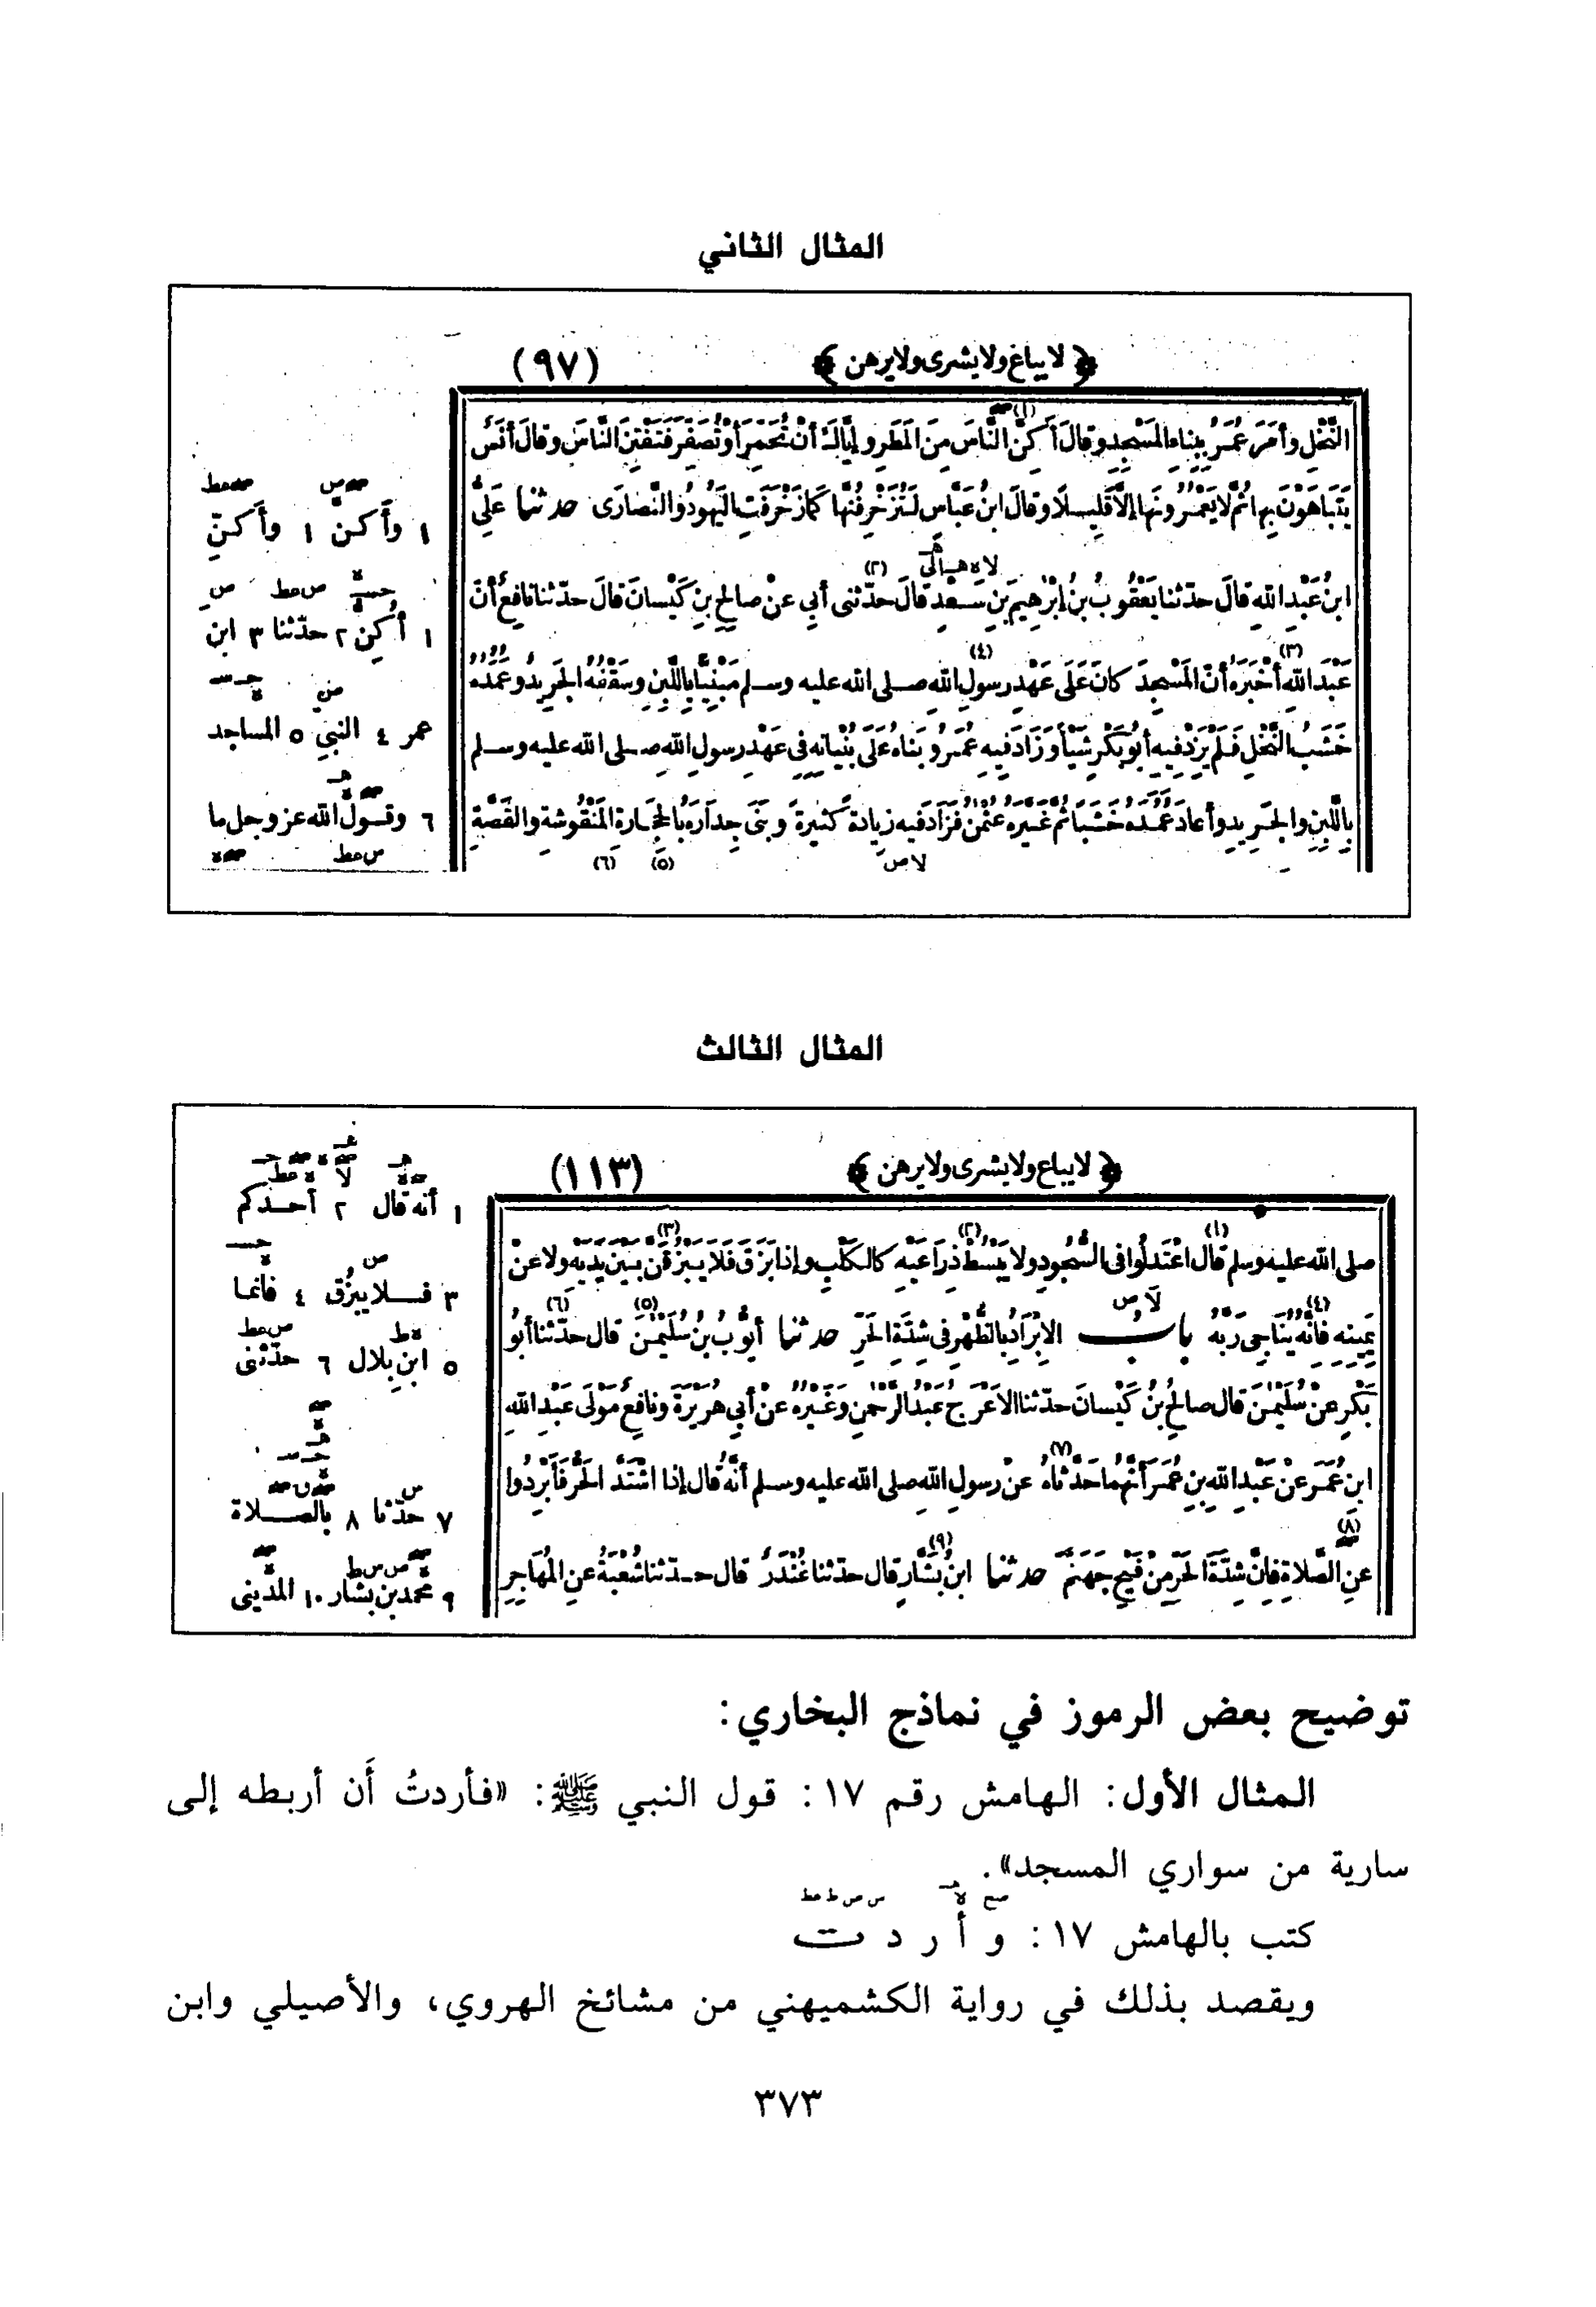 المثال الثاني
﴿ لا يباع ولا يشرى ولا يرهن ﴾ (٩٧)
النَّخْلِ وأَمَرَ عُمَرُ بِبِنَاءِ المَسْجِدِ وقالَ أَكِنَّ النَّاسَ مِنَ المَطَرِ وإيَّاكَ أنْ تُحَمِّرَ أوْ تُصَفِّرَ فَتَفْتِنَ النَّاسَ وقالَ أنَسٌ
يَتَبَاهَوْنَ بِها ثُمَّ لا يَعْمُرُونَها إلَّا قَلِيلًا وقالَ ابنُ عَبَّاسٍ لَتُزَخْرِفُنَّها كَمَا زَخْرَفَتِ اليَهُودُ والنَّصارَى حدثنا عَلِيُّ
ابنُ عَبْدِ اللهِ قالَ حدّثنا يَعْقُوبُ بنُ إبْرٰهِيمَ بنِ سَعْدٍ قالَ حدّثنى أبي عنْ صالِحِ بنِ كَيْسانَ قالَ حدّثنا نافِعٌ أنَّ
عَبْدَ اللهِ أخْبَرَهُ أنَّ المَسْجِدَ كانَ عَلَى عَهْدِ رسولِ اللهِ صلى الله عليه وسلم مَبْنِيًّا بِاللَّبِنِ وسَقْفُهُ الجَرِيدُ وعُمُدُهُ
خَشَبُ النَّخْلِ فَلَمْ يَزِدْ فِيهِ أبُو بَكْرٍ شَيْأً وَزَادَ فِيهِ عُمَرُ وبَنَاهُ عَلَى بُنْيَانِهِ فِى عَهْدِ رسولِ اللهِ صلى الله عليه وسلم
بِاللَّبِنِ والجَرِيدِ وأعادَ عُمُدَهُ خَشَبًا ثُمَّ غَيَّرَهُ عُثْمٰنُ فَزَادَ فيهِ زِيادَةً كَثِيرَةً وبَنَى جِدَارَهُ بِالحِجَارَةِ المَنْقُوشَةِ والقَصَّةِ
١ وأَكِنَّ ١ وأَكِنِّ
١ أُكِنُّ ٢ حدّثنا ٣ ابن
عمر ٤ النبي ٥ المساجد
٦ وقول الله عز وجل ما
المثال الثالث
﴿ لا يباع ولا يشرى ولا يرهن ﴾ (١١٣)
صلى الله عليه وسلم قال اعْتَدِلُوا فى السُّجُودِ ولا يَبْسُطْ ذِرَاعَيْهِ كالكَلْبِ وإذا بَزَقَ فَلا يَبْزُقَنَّ بَيْنَ يَدَيْهِ ولا عنْ
يَمِينِهِ فانَّهُ يُنَاجِى رَبَّهُ باب الإِبْرَادِ بِالظُّهْرِ فى شِدَّةِ الحَرِّ حدثنا أيُّوبُ بنُ سُلَيْمٰنَ قال حدّثنا أبُو
بَكْرٍ عنْ سُلَيْمٰنَ قال صالِحُ بنُ كَيْسانَ حدّثنا الأعْرَجُ عَبْدُ الرَّحْمٰنِ وغَيْرُهُ عنْ أبي هُرَيْرَةَ ونافِعٌ مَوْلَى عَبْدِ اللهِ
ابنِ عُمَرَ عنْ عَبْدِ اللهِ بنِ عُمَرَ أنَّهُما حَدَّثاهُ عنْ رسولِ اللهِ صلى الله عليه وسلم أنَّهُ قال إذا اشْتَدَّ الحَرُّ فَأبْرِدُوا
عنِ الصَّلاةِ فانَّ شِدَّةَ الحَرِّ مِنْ فَيْحِ جَهَنَّمَ حدثنا ابنُ بَشَّارٍ قال حدّثنا غُنْدَرٌ قال حدّثنا شُعْبَةُ عنِ المُهَاجِرِ
١ أنه قال ٢ أحدكم
٣ فلا يبزق ٤ فانما
٥ ابن بلال ٦ حدّثنى
٧ حدّثنا ٨ بالصلاة
٩ محمد بن بشار ١٠ المدينى
توضيح بعض الرموز في نماذج البخاري:
المثال الأول: الهامش رقم ١٧: قول النبي ﷺ: «فأردتُ أَن أربطه إلى
سارية من سواري المسجد».
كتب بالهامش ١٧: و أ ر د ت
ويقصد بذلك في رواية الكشميهني من مشائخ الهروي، والأصيلي وابن
٣٧٣